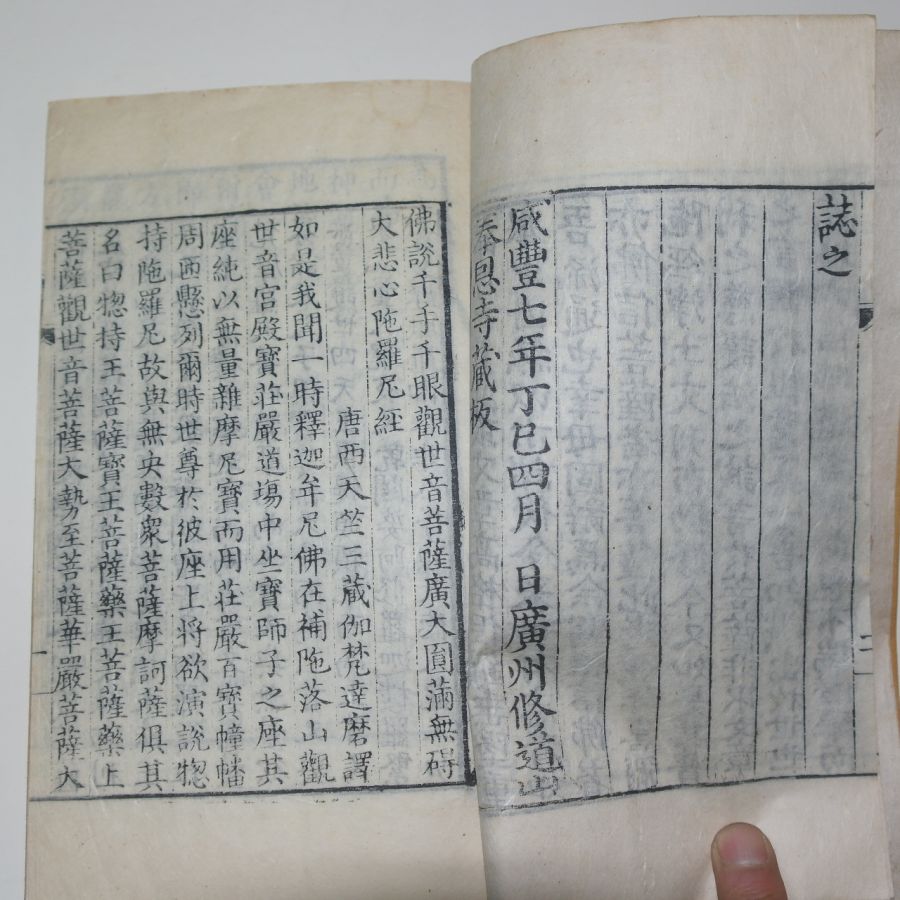 誌之
咸豐七年丁巳四月 日廣州修道山
奉恩寺藏板
佛說千手千眼觀世音菩薩廣大圓滿無碍
大悲心陁羅尼經
唐西天竺三藏伽梵達磨譯
如是我聞一時釋迦牟尼佛在補陁落山觀
世音宮殿寶莊嚴道塲中坐寶師子之座其
座純以無量雜摩尼寶而用莊嚴百寶幢幡
周匝懸列爾時世尊於彼座上將欲演說惣
持陁羅尼故與無央數衆菩薩摩訶薩俱其
名曰惣持王菩薩寶王菩薩藥王菩薩藥上
菩薩觀世音菩薩大勢至菩薩華嚴菩薩大
一